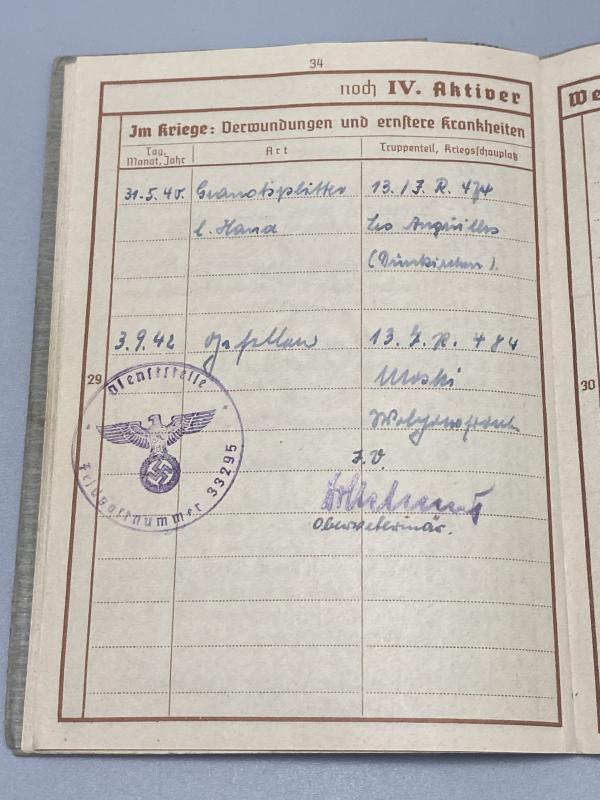 34
noch IV. Aktiver
We
Im Kriege: Verwundungen und ernstere Krankheiten
Tag, Monat, Jahr
Art
Truppenteil, Kriegsschauplatz
31.5.40. Granatsplitter 13./J.R. 474
l. Hand Les
(Dünkirchen).
3.9.42 gefallen 13. J.R. 484
29
30
Dienststelle
Feldpostnummer 33295
J.V.
Oberveterinär.